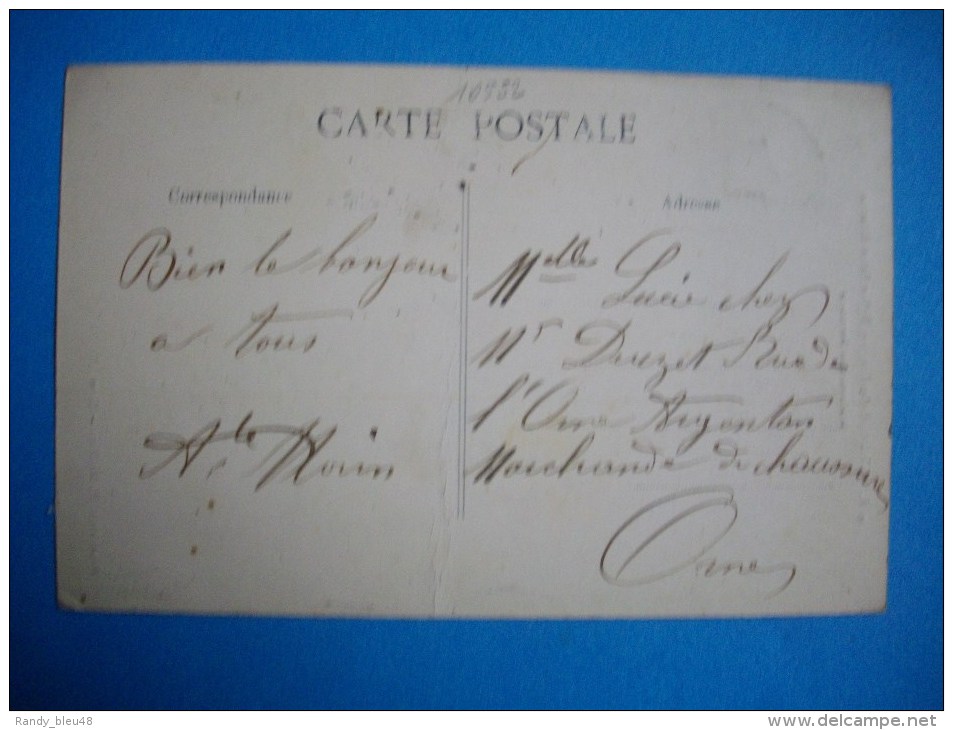 10932
CARTE POSTALE
Correspondance
Adresse
Bien le bonjour
a tous
Melle Lucie chez
Mr Duezet Rue de
l'Orne Argentan
Marchande de chaussures
Orne
Randy_bleu48
www.delcampe.net